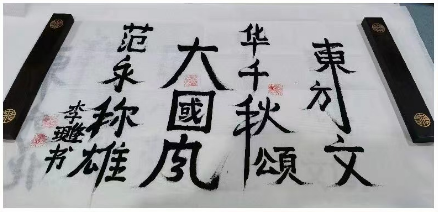 東方文
华千秋頌
大國风
范永称雄
李书